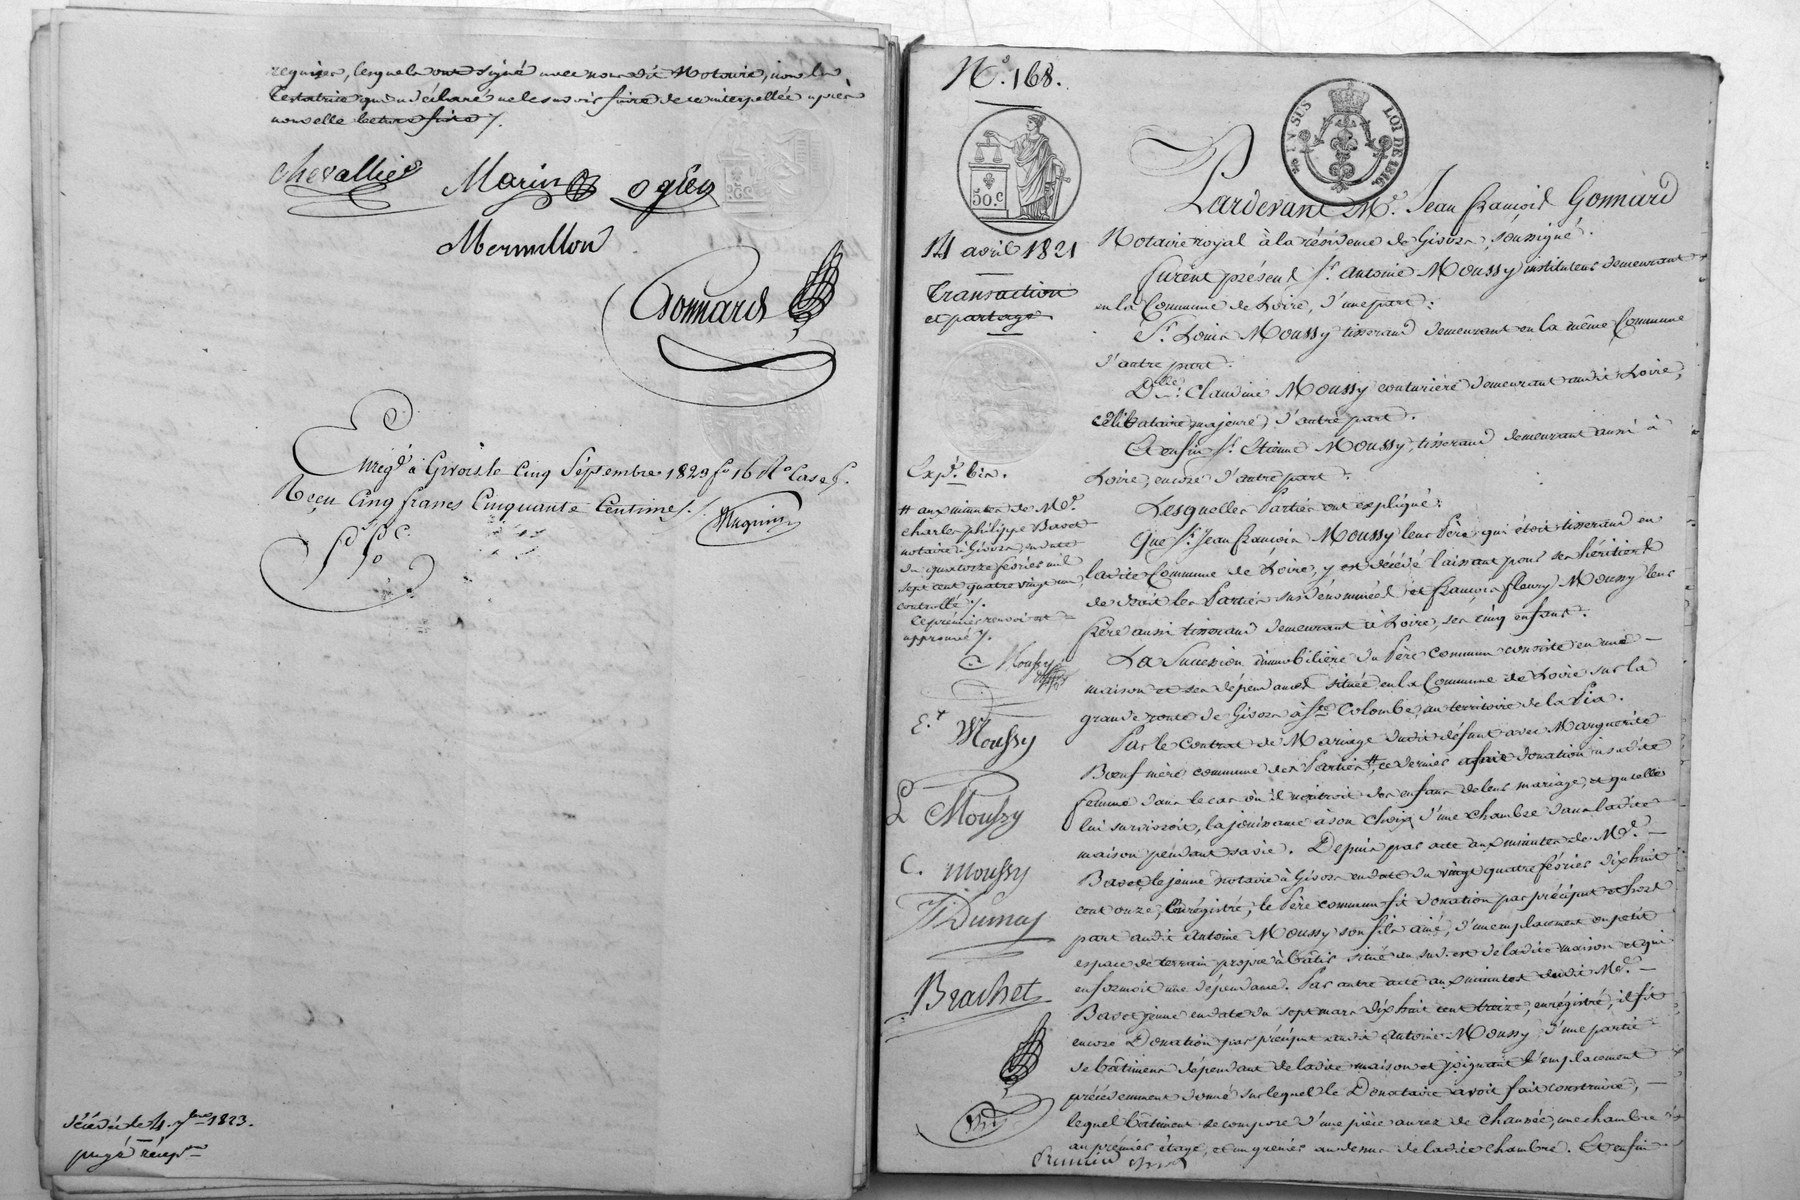 requises, lesquels ont signé avec nous dit Notaire, non la
Testatrice qui a déclaré ne le savoir faire de ce interpellée après
nouvelle lecture faite /.
Chevallier Marin Ogier
Mermillon
Gonnard
Enregé à Givors le Cinq Septembre 1823 fo 16 Ro Case 5.
Reçu Cinq francs Cinquante Centimes /.
décédée le 4 7bre 1823.
payé récepon
No. 168.
50.c
14 avril 1821
Transaction
et partage
LOI DE 1816.
Pardevant Me. Jean françois Gonnard
Notaire royal à la résidence de Givors, soussigné.
furent présens Sr. Antoine Moussy instituteur demeurant
en la Commune de Loire, d'une part:
Sr. Louis Moussy tisserand demeurant en la même Commune
d'autre part.
Dlle. Claudine Moussy couturière demeurant audit Loire,
célibataire majeure, d'autre part.
Et enfin Sr. Etienne Moussy, tisserand demeurant aussi à
Loire, encore d'autre part.
Lesquelles Parties ont expliqué:
Que Sr. Jean françois Moussy leur Père qui étoit tisserand en
ladite Commune de Loire, y est décédé laissant pour ses héritiers
de droit les Parties susdénommées et françois fleury Moussy leur
frère aussi tisserand demeurant à Loire, ses cinq enfans.
La Succession immobilière du Père commun consiste en une
maison et ses dépendances située en la Commune de Loire sur la
grande route de Givors à Ste Colombe, au territoire de la Via.
Par le contrat de Mariage dudit défunt avec Marguerite
Bœuf mère commune des Parties #, ce dernier a fait donation à sadite
femme dans le cas où il naîtroit des enfans de leur mariage, et qu'elle
lui survivroit, la jouissance à son choix d'une chambre dans ladite
maison pendant sa vie. Depuis par acte aux minutes de Me.
Bavet le jeune notaire à Givors en date du vingt quatre février dix huit
cent onze, enregistré, le Père commun fit donation par préciput et hors
part audit Antoine Moussy son fils aîné, d'un emplacement ou petit
espace de terrain propre à bâtir situé au sud-est de ladite maison et qui
en formoit une dépendance. Par autre acte aux minutes dudit Me.
Bavet jeune en date du sept mars dix huit cent treize, enregistré, il fit
encore Donation par préciput audit Antoine Moussy d'une partie
de bâtimens dépendant de ladite maison et joignant l'emplacement
précédemment donné sur lequel le Donataire avoit fait construire,
lequel bâtiment se compose d'une pièce au rez de chaussée, une chambre
au premier étage, et un grenier au dessus de ladite chambre. Et enfin
Expé. bis.
# aux minutes de Me.
Charles philippe Bavet
notaire à Givors, en date
du quatorze février mil
sept cent quatre vingt un,
contrôlé /.
ce premier renvoi est
approuvé /.
Moussy
Et Moussy
L Moussy
C. Moussy
Dumas
Brachet